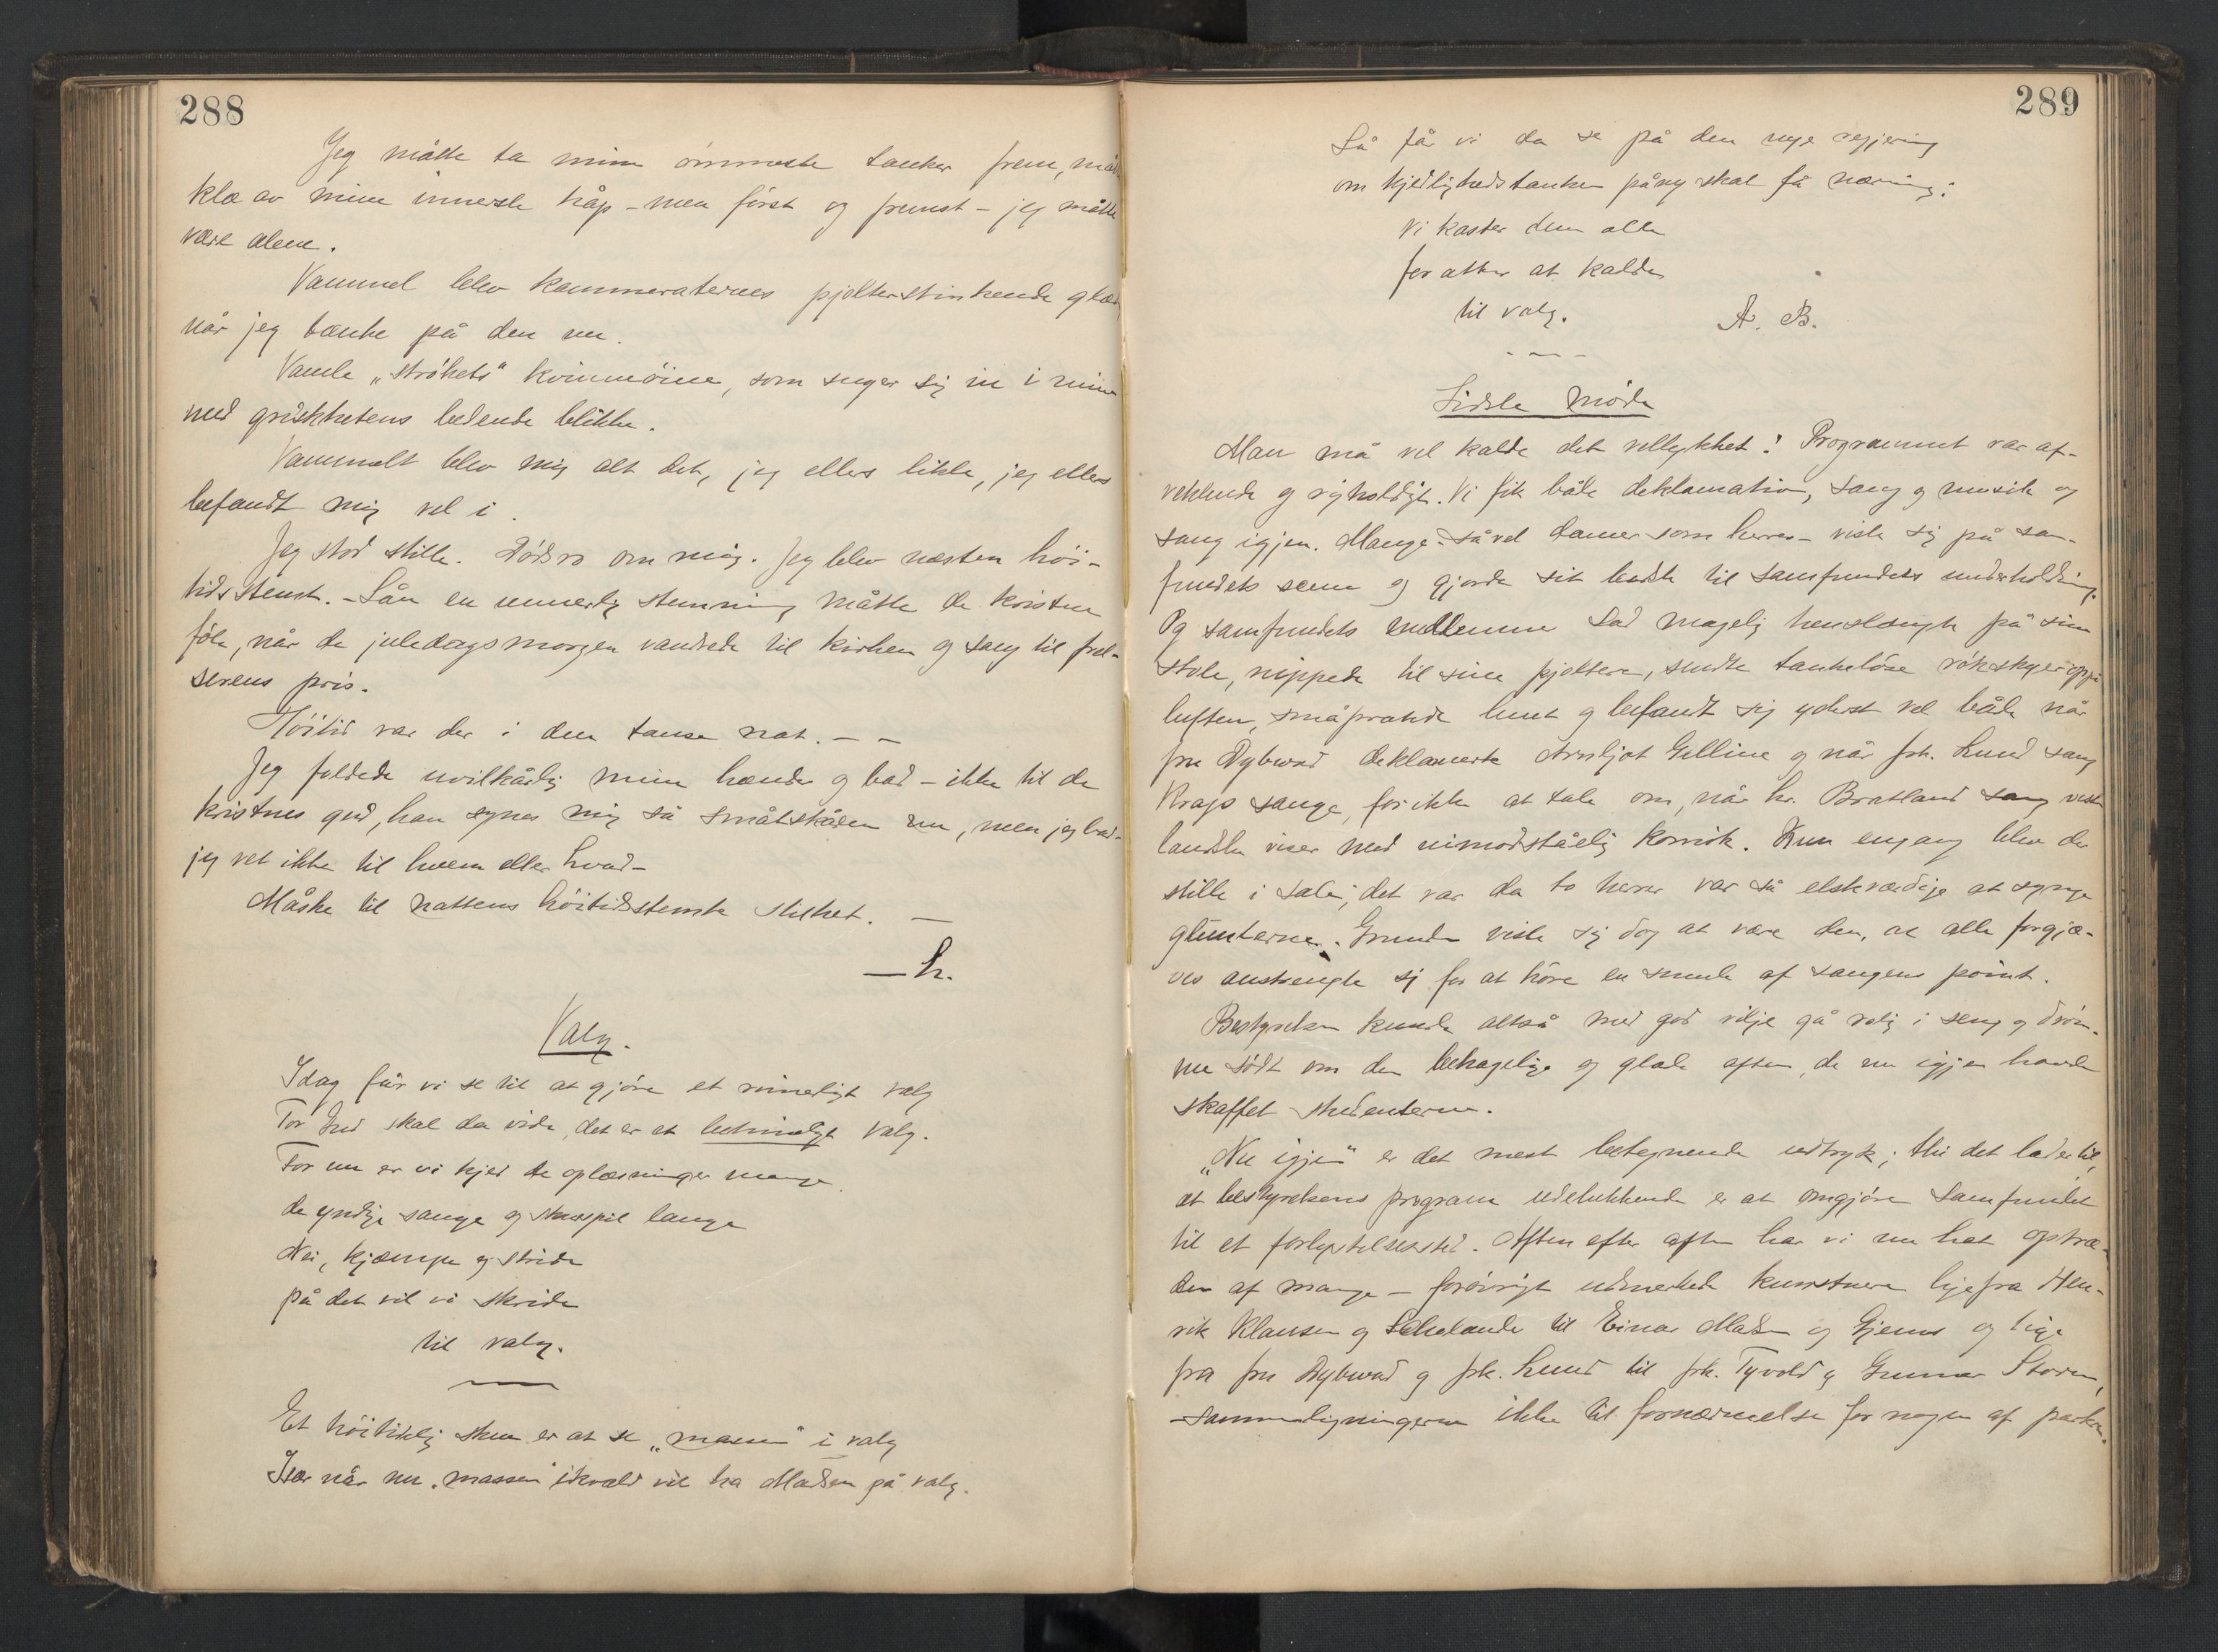 288
Jeg måtte ta mine ømmeste tanker frem, måtte
klæ av mine innerste håp – men først og fremst – jeg måtte
være alene.
Vammel blev kammeraternes pjolterstinkende glæde,
når jeg tænkte på den nu.
Vamle „strøkets" kvinneøine, som suger sig in i mine
med griskhetens bedende blikke.
Vammelt blev mig alt det, jeg ellers likte, jeg ellers
befandt mig vel i.
Jeg stod stille. Dødsro om mig. Jeg blev næsten høi-
tidsstemt. – Sån en underlig stemning måtte de kristne
føle, når de juledagsmorgen vandrede til kirken og sang til frel-
serens pris.
Høitid var der i den tause nat. – –
Jeg foldede uvilkårlig mine hænder og bad – ikke til de
kristnes gud, han synes mig så småtskåren nu, men jeg bad –
jeg vet ikke til hvem eller hvad –
Måske til nattens høitidsstemte stilhet. —
— h.
Valg.
Idag får vi se til at gjøre et rimeligt valg
Tor Lind skal da vide, det er et betimeligt valg.
For nu er vi kjed de oplæsninger mange
de yndige sange og skuespil lange
Nei, kjæmpe og stride
på det vil vi skride
til valg.
Et høitidelig skue er at se „massen" i valg
Især når nu „massen" ikvæld vil ha Madsen på valg.
289
Så får vi da se på den nye regjering
om kjedlighedstanken påny skal få næring:
Vi kaster dem alle
for atter at kalde
til valg.
A. B.
Sidste møde
Man må vel kalde det vellykket! Programmet var af-
vekslende og righoldigt. Vi fik både deklamation, sang og musik og
sang igjen. Mange – såvel damer som herrer – viste sig på sam-
fundets scene og gjorde sit bedste til samfundets underholdning.
Og samfundets medlemmer sad magelig henslængte på sine
stole, nippede til sine pjoltere, sendte tankeløse røkskyer op i
luften, småpratede lunt og befandt sig yderst vel både når
fru Dybwad deklamerte Arnljot Gelline og når frk. Lund sang
Krags sange, for ikke at tale om, når hr. Bratland sang vest-
landske viser med uimodståelig komik. Kun engang blev der
stille i salen; det var da to herrer var så elskværdige at synge
glunterne. Grunden viste sig dog at være den, at alle forgjæ-
ves anstrengte sig for at høre en smule af sangens point.
Bestyrelsen kunde altså med god vilje gå rolig i seng og drøm-
me sødt om den behagelige og glade aften, de nu igjen havde
skaffet studenterne.
„Nu igjen" er det mest betegnende udtryk; thi det lader til,
at bestyrelsens program udelukkende er at omgjøre Samfundet
til et forlystelsessted. Aften efter aften har vi nu hat optræ-
den af mange – forøvrigt udmerkede kunstnere lige fra Hen-
rik Klausen og Schelande til Einar Madsen og Gjems og lige
fra fru Dybwad og frk. Lund til frk. Tyvold og Gunnar Storm,
– sammenligningerne ikke til fornærmelse for nogen af parterne.